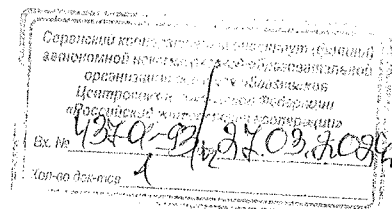 Саранский кооперативный институт (филиал)
автономной некоммерческой образовательной
организации высшего образования
Центросоюза Российской Федерации
«Российский университет кооперации»
Вх. № 27.03.2024
Кол-во док-тов 1